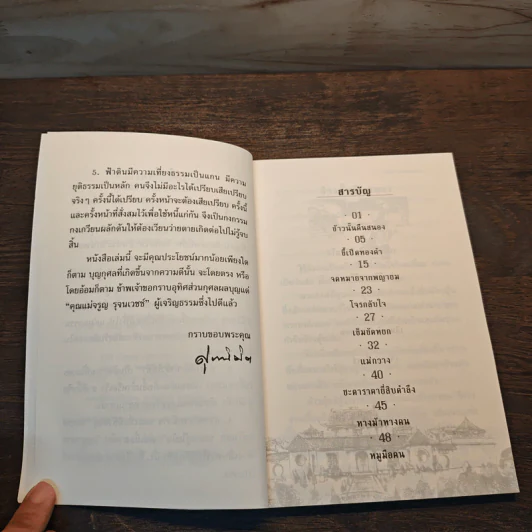 5. ฟ้าดินมีความเที่ยงธรรมเป็นแกน มีความ
ยุติธรรมเป็นหลัก คนจึงไม่มีอะไรได้เปรียบเสียเปรียบ
จริงๆ ครั้งนี้ได้เปรียบ ครั้งหน้าจะต้องเสียเปรียบ ครั้งนี้
และครั้งหน้าที่สั่งสมไว้เพื่อใช้หนี้แก่กัน จึงเป็นกงกรรม
กงเกวียนผลักดันให้ต้องเวียนว่ายตายเกิดต่อไปไม่รู้จบ
สิ้น
หนังสือเล่มนี้ จะมีคุณประโยชน์มากน้อยเพียงใด
ก็ตาม บุญกุศลที่เกิดขึ้นจากความดีนั้น จะโดยตรง หรือ
โดยอ้อมก็ตาม ข้าพเจ้าขอกราบอุทิศส่วนกุศลผลบุญแด่
“คุณแม่จรูญ รุจนเวชช์” ผู้เจริญธรรมซึ่งไปดีแล้ว
กราบขอบพระคุณ
สารบัญ
· 01 ·
ข้าวนั้นคืนสนอง
· 05 ·
ขี้เป็ดทองคำ
· 15 ·
จดหมายจากพญายม
· 23 ·
โจรกลับใจ
· 27 ·
เข็มขัดหยก
· 32 ·
แม่กวาง
· 40 ·
ชะตาราคายี่สิบตำลึง
· 45 ·
หางม้าหางคน
· 48 ·
หมูมือคน